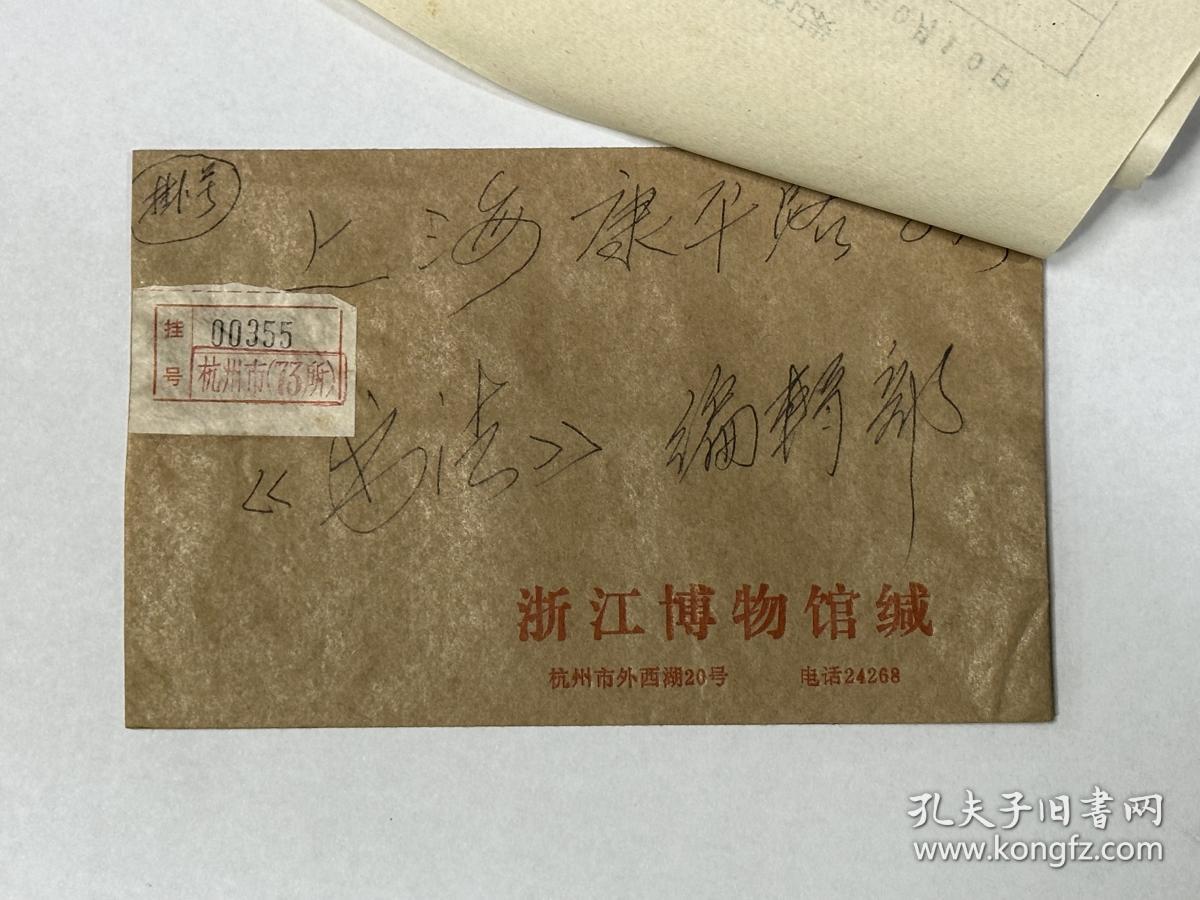 挂号
上海康平路
挂号 00355
杭州市(73所)
《书法》编辑部
浙江博物馆缄
杭州市外西湖20号 电话24268
孔夫子旧书网
www.kongfz.com